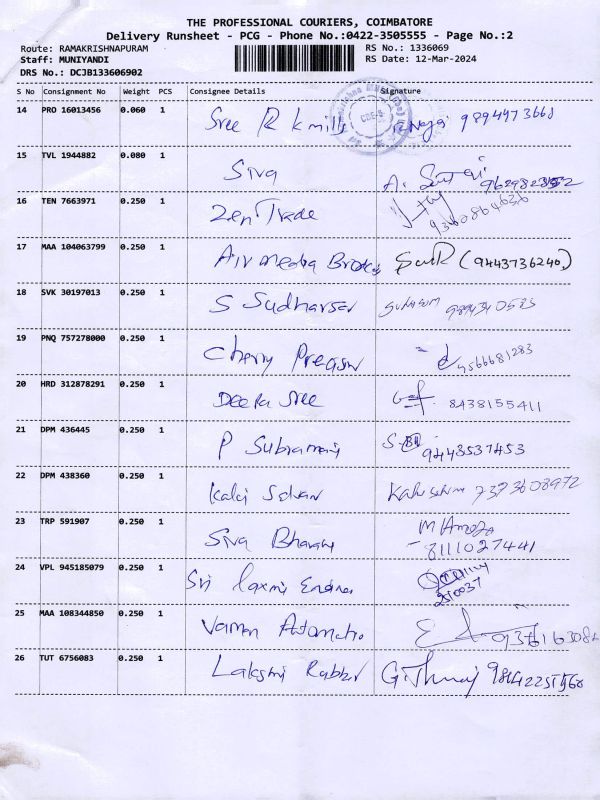 THE PROFESSIONAL COURIERS, COIMBATORE
Delivery Runsheet - PCG - Phone No.:0422-3505555 - Page No.:2
Route: RAMAKRISHNAPURAM RS No.: 1336069
Staff: MUNIYANDI RS Date: 12-Mar-2024
DRS No.: DCJB133606902
S No Consignment No Weight PCS Consignee Details Signature
14 PRO 16013456 0.060 1 Sree R K mills 9894473668
15 TVL 1944882 0.080 1 Siva
16 TEN 7663971 0.250 1 Zen Trade 9360864636
17 MAA 104063799 0.250 1 Air media (9443736240)
18 SVK 30197013 0.250 1 S Sudharsan
19 PNQ 757278000 0.250 1 Cherry
20 HRD 312878291 0.250 1 Deepa Sree 8438155411
21 DPM 436445 0.250 1 P Subramani 9443537453
22 DPM 438360 0.250 1 7373608972
23 TRP 591907 0.250 1 Siva 8111027441
24 VPL 945185079 0.250 1 Sri laxmi
25 MAA 108344850 0.250 1
26 TUT 6756083 0.250 1 Lakshmi Rubber